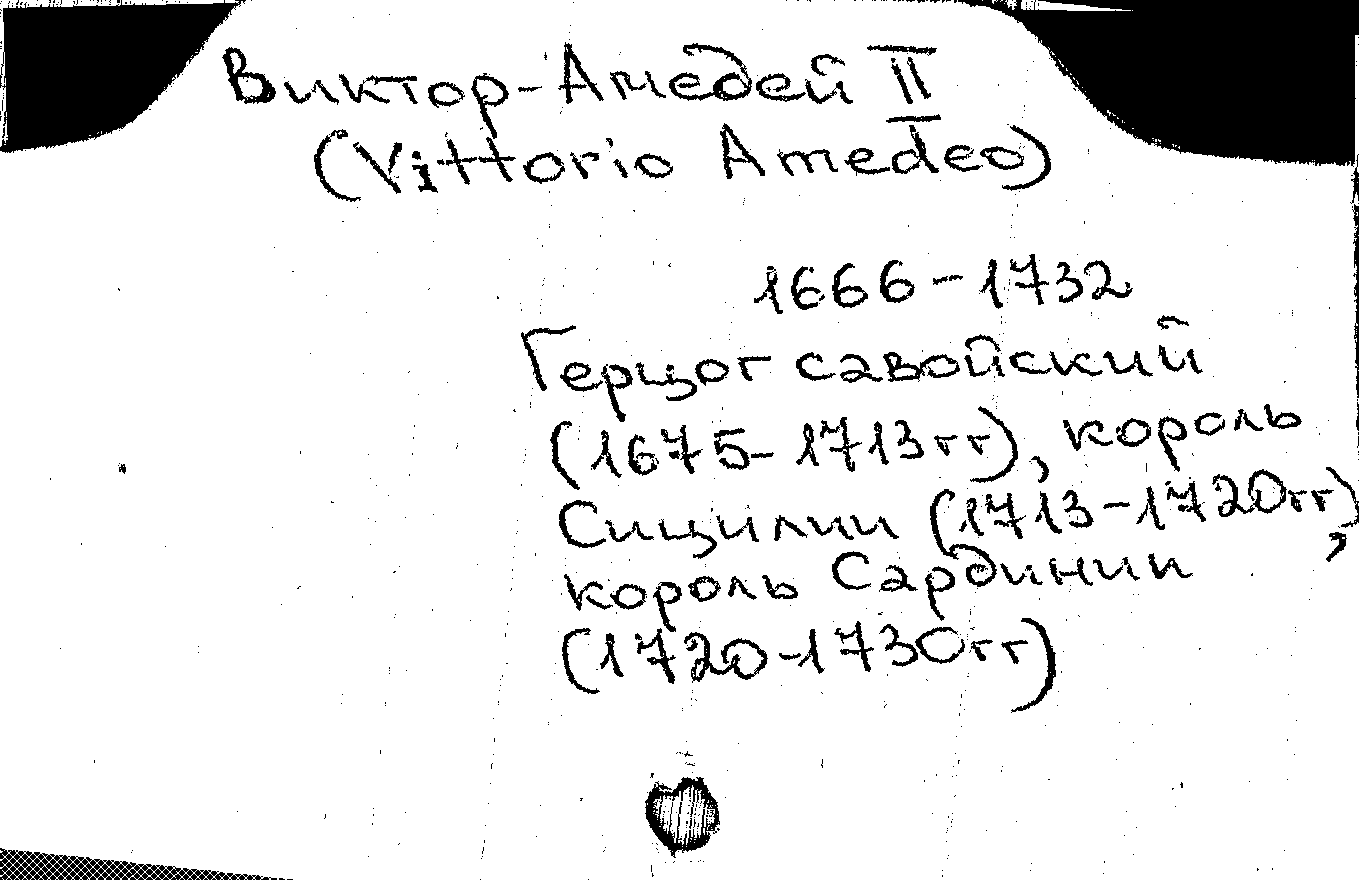 Виктор-Амедей II
(Vittorio Amedeo)
1666-1732
Герцог савойский
(1675-1713гг), король
Сицилии (1713-1720гг),
король Сардинии
(1720-1730гг)